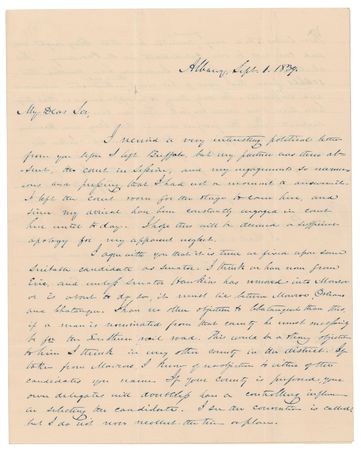 Albany, Sept. 1. 1839.
My Dear Sir,
I received a very interesting political letter
from you before I left Buffalo, but my partner was then ab-
sent, the court in session, and my engagements so numer-
ous and pressing that I had not a moment to answer it.
I left the court room for the stage to come here, and
since my arrival have been constantly engaged in court
here until to day. I hope this will be deemed a sufficient
apology for my apparent neglect.
I agree with you that it is time we fixed upon some
suitable candidate as senator. I think we have now from
Erie, and unless Senator Hawkins has removed into Monroe
or is about to do so, it must lie between Monroe Orleans
and Chautauque. I have no other objection to Chautauque than this,
if a man is nominated from that county he must necessarily
be for the Southern rail road. This would be a strong objection
to him I think in every other county in the district. If
taken from Monroe, I know of no objection to either of the
candidates you name. If your County is preferred, your
own delegates will doubtless have a controlling influence
in selecting the candidate. I see the convention is called,
but I do not now recollect the time or place.